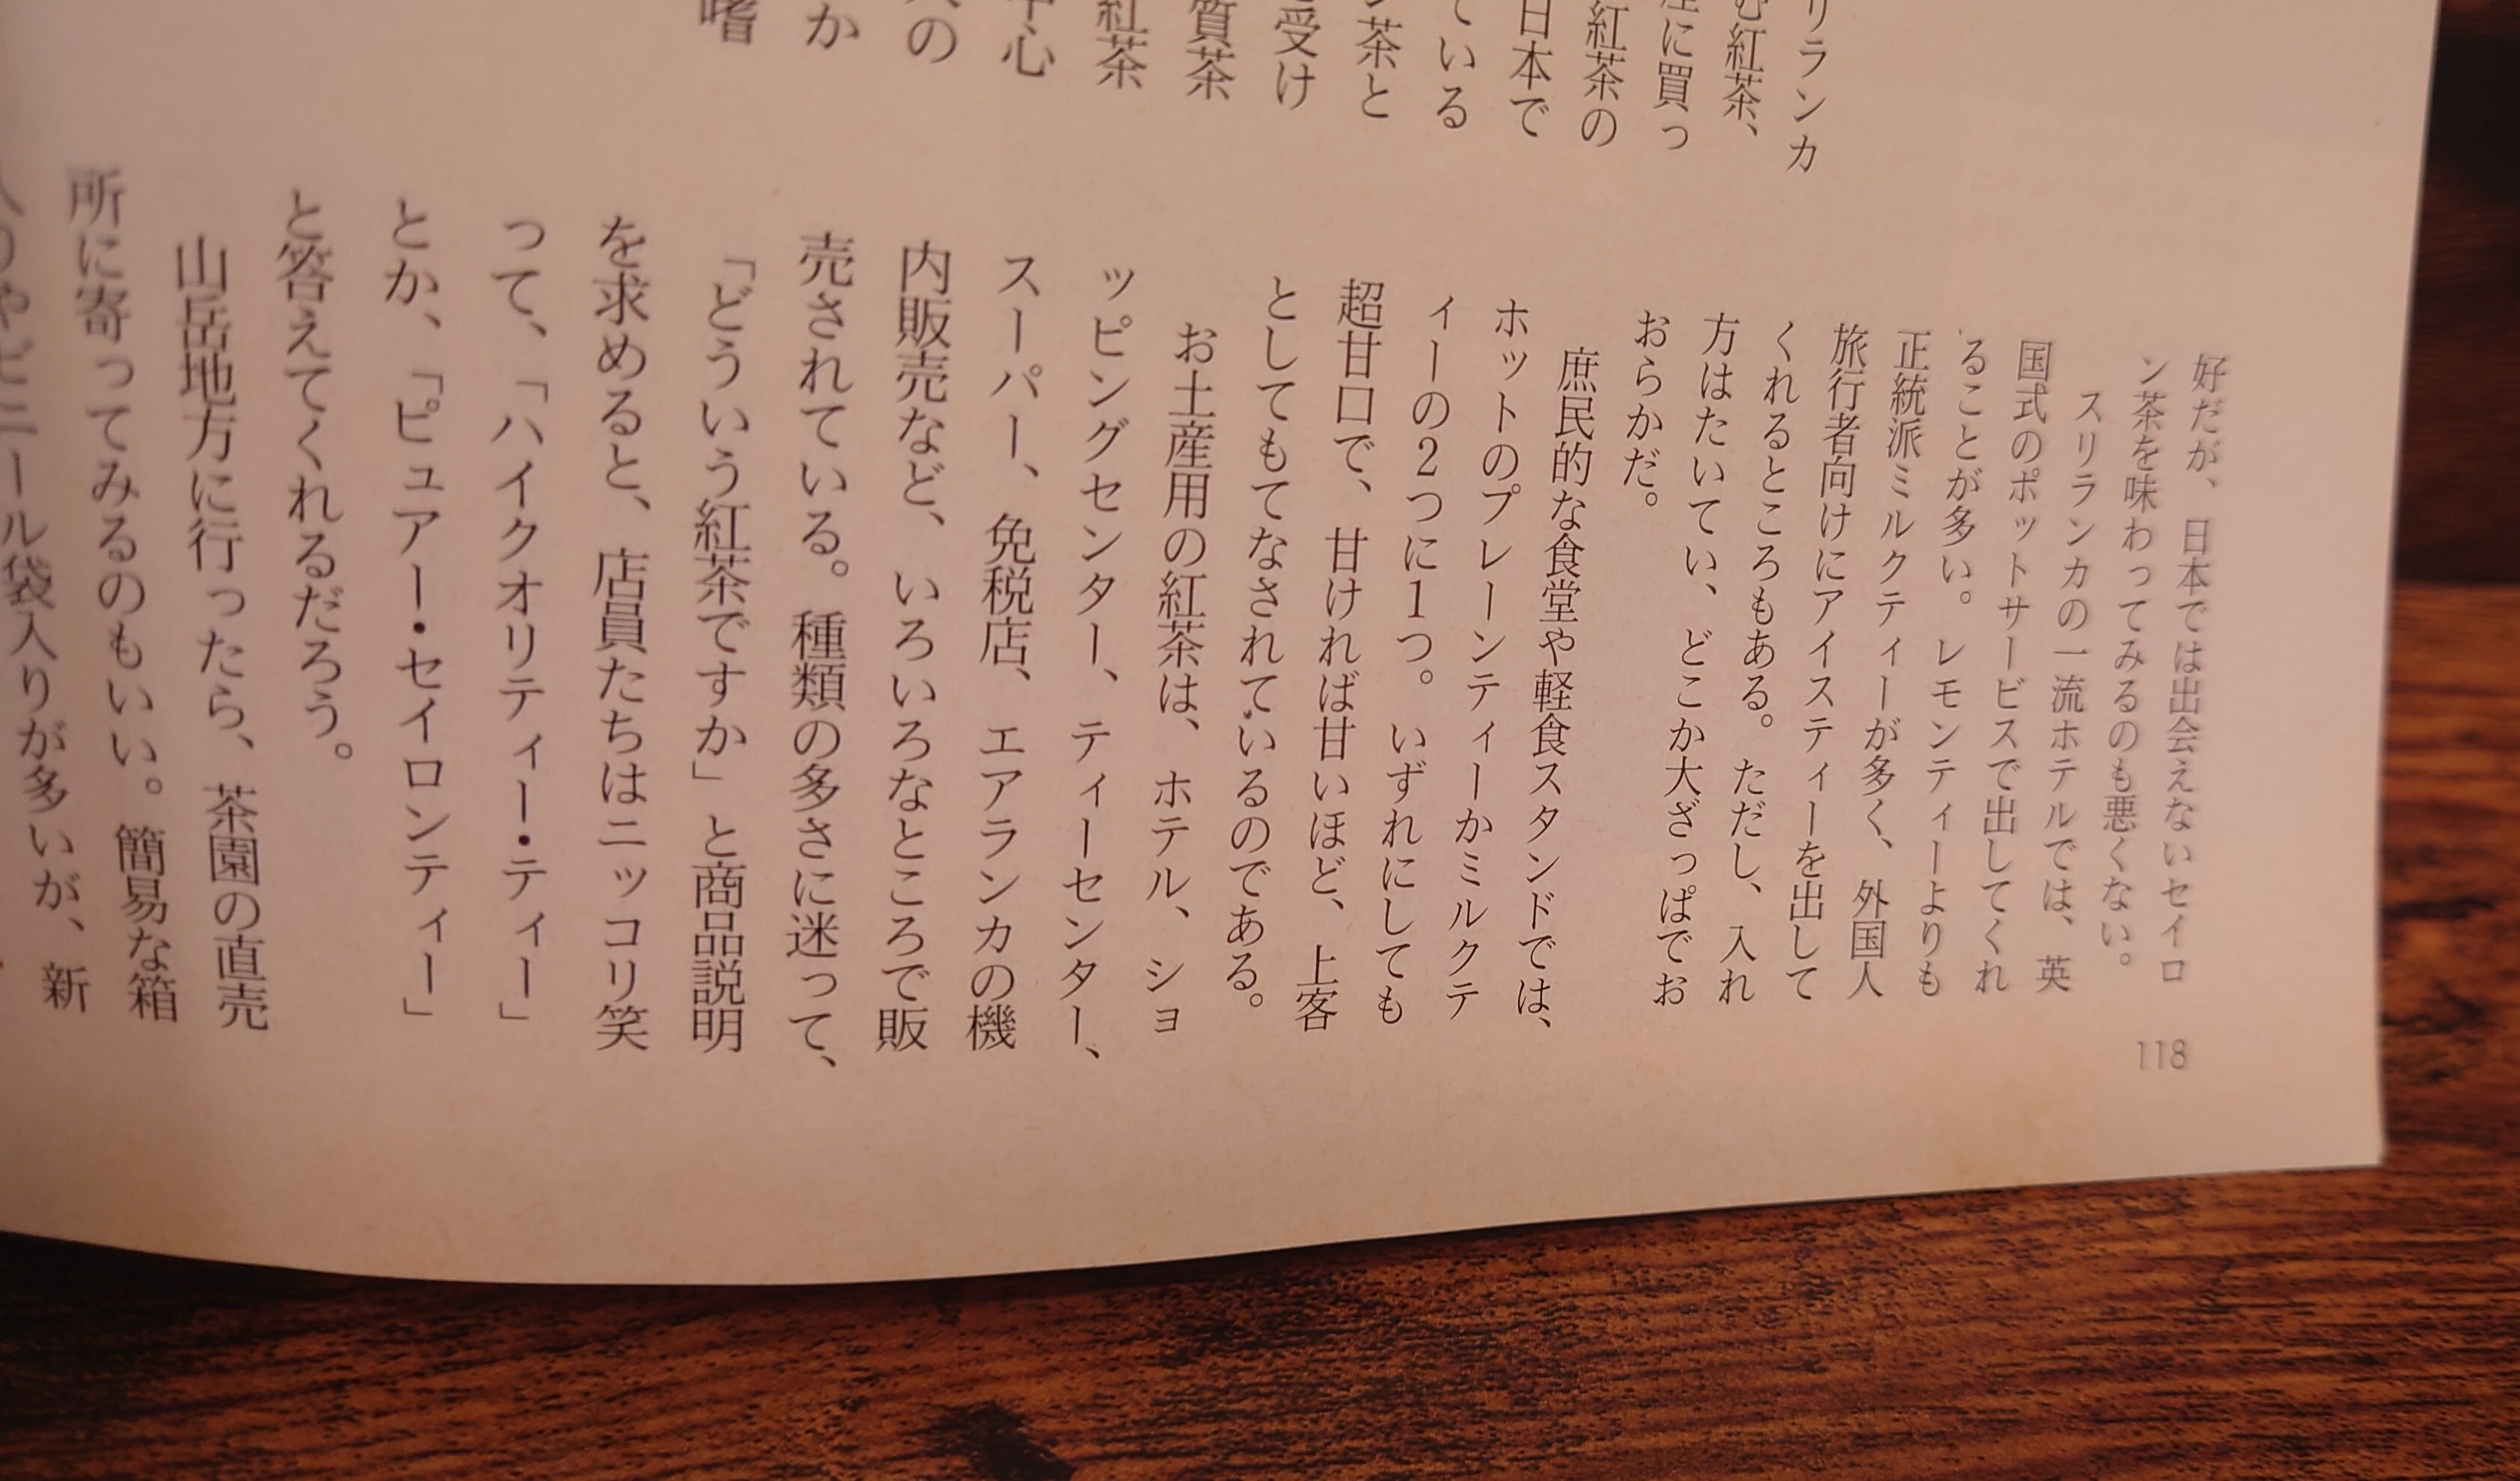 リランカ
紅茶、
に買っ
紅茶の
日本で
ている
茶と
受け
質茶
紅茶
中心
の
か
嗜
好だが、日本では出会えないセイロ
ン茶を味わってみるのも悪くない。
スリランカの一流ホテルでは、英
国式のポットサービスで出してくれ
ることが多い。レモンティーよりも
正統派ミルクティーが多く、外国人
旅行者向けにアイスティーを出して
くれるところもある。ただし、入れ
方はたいてい、どこか大ざっぱでお
おらかだ。
庶民的な食堂や軽食スタンドでは、
ホットのプレーンティーかミルクテ
ィーの2つに1つ。いずれにしても
超甘口で、甘ければ甘いほど、上客
としてもてなされているのである。
お土産用の紅茶は、ホテル、ショ
ッピングセンター、ティーセンター、
スーパー、免税店、エアランカの機
内販売など、いろいろなところで販
売されている。種類の多さに迷って、
「どういう紅茶ですか」と商品説明
を求めると、店員たちはニッコリ笑
って、「ハイクオリティー・ティー」
とか、「ピュアー・セイロンティー」
と答えてくれるだろう。
山岳地方に行ったら、茶園の直売
所に寄ってみるのもいい。簡易な箱
入りやビニール袋入りが多いが、新
118